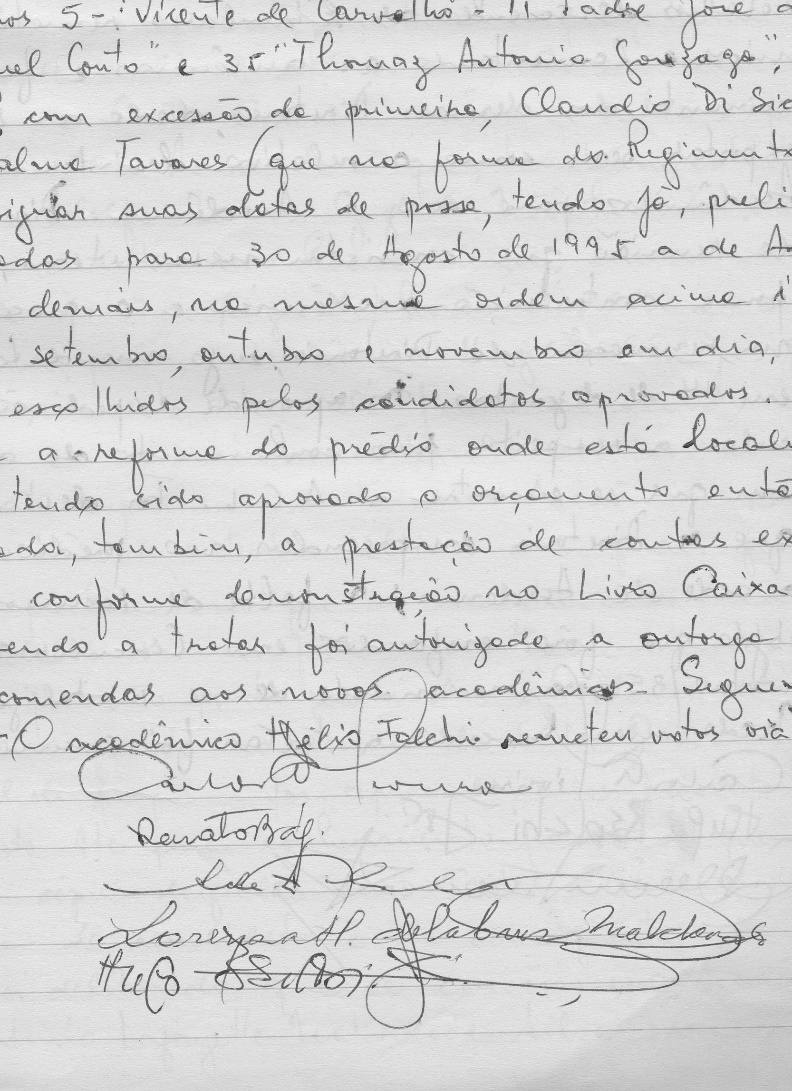 nos 5 - "Vicente de Carvalho - 11 Padre José d
uel Couto" e 35 "Thomaz Antonio Gonzaga",
com excessão do primeiro, Claudio Di Sic
alma Tavares (que na forma do Regimento
signar suas datas de posse, tendo já, preli
adas para 30 de Agosto de 1995 a de A
demais, na mesma ordem acima i
setembro, outubro e novembro em dia,
escolhidos pelos candidatos aprovados.
a reforma do prédio onde está local
tendo sido aprovado o orçamento entã
ada, também, a prestação de contas ex
conforme demonstração no Livro Caixa
endo a tratar foi autorizada a outorga
comendas aos novos acadêmicos. Seguem
- O acadêmico Hélio Falchi remeteu votos via
Renato Báez.
Lorenza H. Maldonado
Hugo